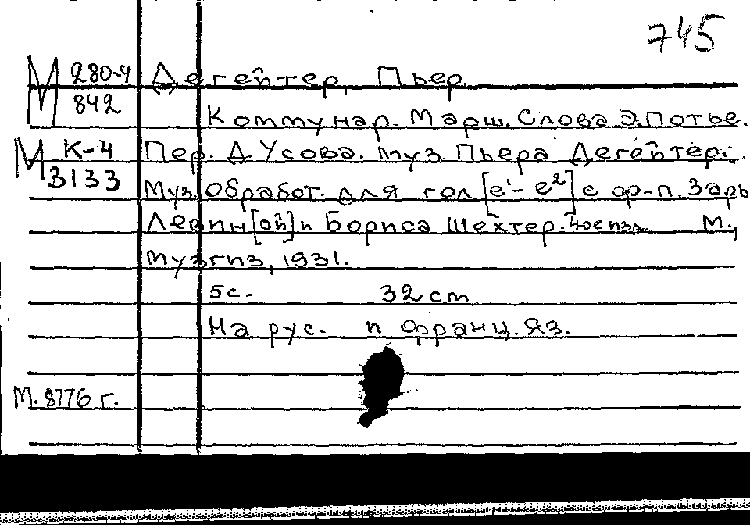 745
М 280-4 Дегейтер, Пьер
842 Коммунар. Марш. Слова Э. Потье.
М К-4 Пер. Д. Усова. Муз Пьера Дегейтер.
3133 Муз. обработ. для гол [e¹-e²] с ор-п. Зары
Левин[ой] и Бориса Шехтер. М.,
Музгиз, 1931.
5с. 32 cm
На рус. и франц. яз.
М. 8776 г.